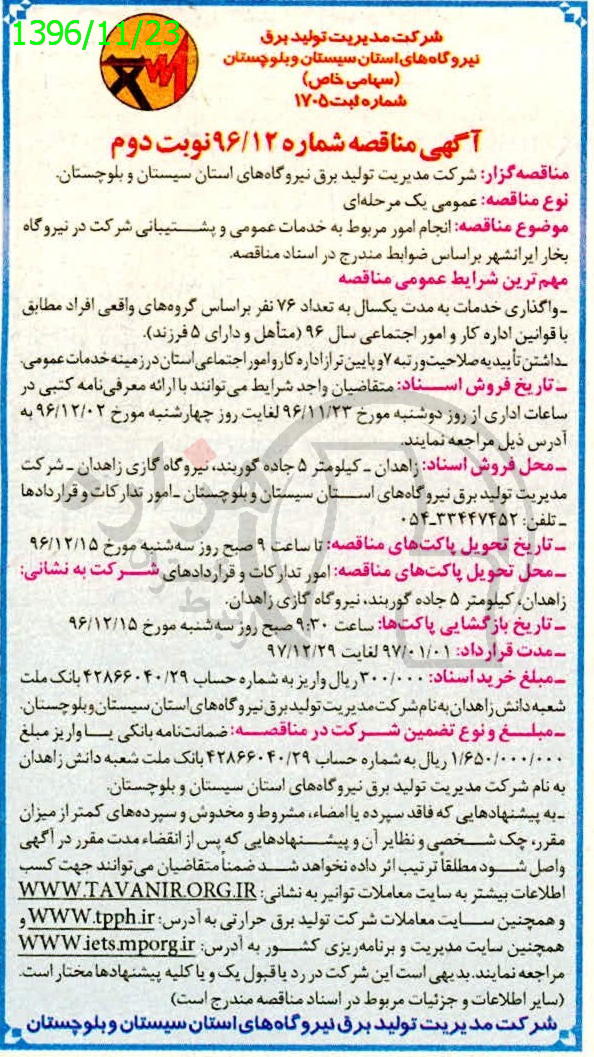 1396/11/23
شرکت مدیریت تولید برق
نیروگاه‌های استان سیستان و بلوچستان
(سهامی خاص)
شماره ثبت ۱۷۰۵
آگهی مناقصه شماره ۹۶/۱۲ نوبت دوم
مناقصه‌گزار: شرکت مدیریت تولید برق نیروگاه‌های استان سیستان و بلوچستان.
نوع مناقصه: عمومی یک مرحله‌ای
موضوع مناقصه: انجام امور مربوط به خدمات عمومی و پشـــتیبانی شرکت در نیروگاه
بخار ایرانشهر براساس ضوابط مندرج در اسناد مناقصه.
مهم‌ترین شرایط عمومی مناقصه
ـ واگذاری خدمات به مدت یکسال به تعداد ۷۶ نفر براساس گروه‌های واقعی افراد مطابق
با قوانین اداره کار و امور اجتماعی سال ۹۶ (متأهل و دارای ۵ فرزند).
ـ داشتن تأییدیه صلاحیت و رتبه ۷ و پایین‌تر از اداره کار و امور اجتماعی استان در زمینه خدمات عمومی.
ـ تاریخ فروش اســـناد: متقاضیان واجد شرایط می‌توانند با ارائه معرفی‌نامه کتبی در
ساعات اداری از روز دوشنبه مورخ ۹۶/۱۱/۲۳ لغایت روز چهارشنبه مورخ ۹۶/۱۲/۰۲ به
آدرس ذیل مراجعه نمایند.
ـ محل فروش اسناد: زاهدان ـ کیلومتر ۵ جاده گوربند، نیروگاه گازی زاهدان ـ شرکت
مدیریت تولید برق نیروگاه‌های اســـتان سیستان و بلوچستان ـ امور تدارکات و قراردادها
ـ تلفن: ۳۳۴۴۷۴۵۲ـ۰۵۴
ـ تاریخ تحویل پاکت‌های مناقصه: تا ساعت ۹ صبح روز سه‌شنبه مورخ ۹۶/۱۲/۱۵
ـ محل تحویل پاکت‌های مناقصه: امور تدارکات و قراردادهای شـــرکت به نشانی:
زاهدان، کیلومتر ۵ جاده گوربند، نیروگاه گازی زاهدان.
ـ تاریخ بازگشایی پاکت‌ها: ساعت ۹:۳۰ صبح روز سه‌شنبه مورخ ۹۶/۱۲/۱۵
ـ مدت قرارداد: ۹۷/۰۱/۰۱ لغایت ۹۷/۱۲/۲۹
ـ مبلغ خرید اسناد: ۳۰۰/۰۰۰ ریال واریز به شماره حساب ۴۲۸۶۶۰۴۰/۲۹ بانک ملت
شعبه دانش زاهدان به نام شرکت مدیریت تولید برق نیروگاه‌های استان سیستان و بلوچستان.
ـ مبلـــغ و نوع تضمین شـــرکت در مناقصـــه: ضمانت‌نامه بانکی یـــا واریز مبلغ
۱/۶۵۰/۰۰۰/۰۰۰ ریال به شماره حساب ۴۲۸۶۶۰۴۰/۲۹ بانک ملت شعبه دانش زاهدان
به نام شرکت مدیریت تولید برق نیروگاه‌های استان سیستان و بلوچستان.
ـ به پیشنهادهایی که فاقد سپرده یا امضاء، مشروط و مخدوش و سپرده‌های کمتر از میزان
مقرر، چک شـــخصی و نظایر آن و پیشـــنهادهایی که پس از انقضاء مدت مقرر در آگهی
واصل شـــود مطلقاً ترتیب اثر داده نخواهد شـــد ضمناً متقاضیان می‌توانند جهت کسب
اطلاعات بیشتر به سایت معاملات توانیر به نشانی: WWW.TAVANIR.ORG.IR
و همچنین ســـایت معاملات شرکت تولید برق حرارتی به آدرس: WWW.tpph.ir و
همچنین سایت مدیریت و برنامه‌ریزی کشـــور به آدرس: WWW.iets.mporg.ir
مراجعه نمایند. بدیهی است این شرکت در رد یا قبول یک و یا کلیه پیشنهادها مختار است.
(سایر اطلاعات و جزئیات مربوط در اسناد مناقصه مندرج است)
شرکت مدیریت تولید برق نیروگاه‌های استان سیستان و بلوچستان